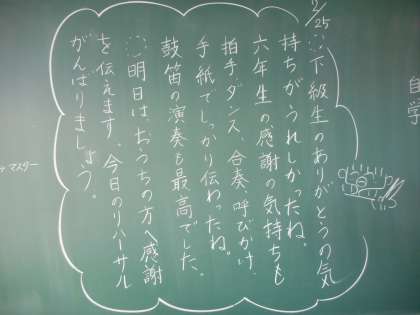 2/25
自学
下級生のありがとうの気
持ちがうれしかったね。
六年生の感謝の気持ちも
拍手、ダンス、合奏、呼びかけ、
手紙でしっかり伝わったね。
鼓笛の演奏も最高でした。
明日はおうちの方へ感謝
を伝えます。今日のリハーサル
がんばりましょう。
マスター